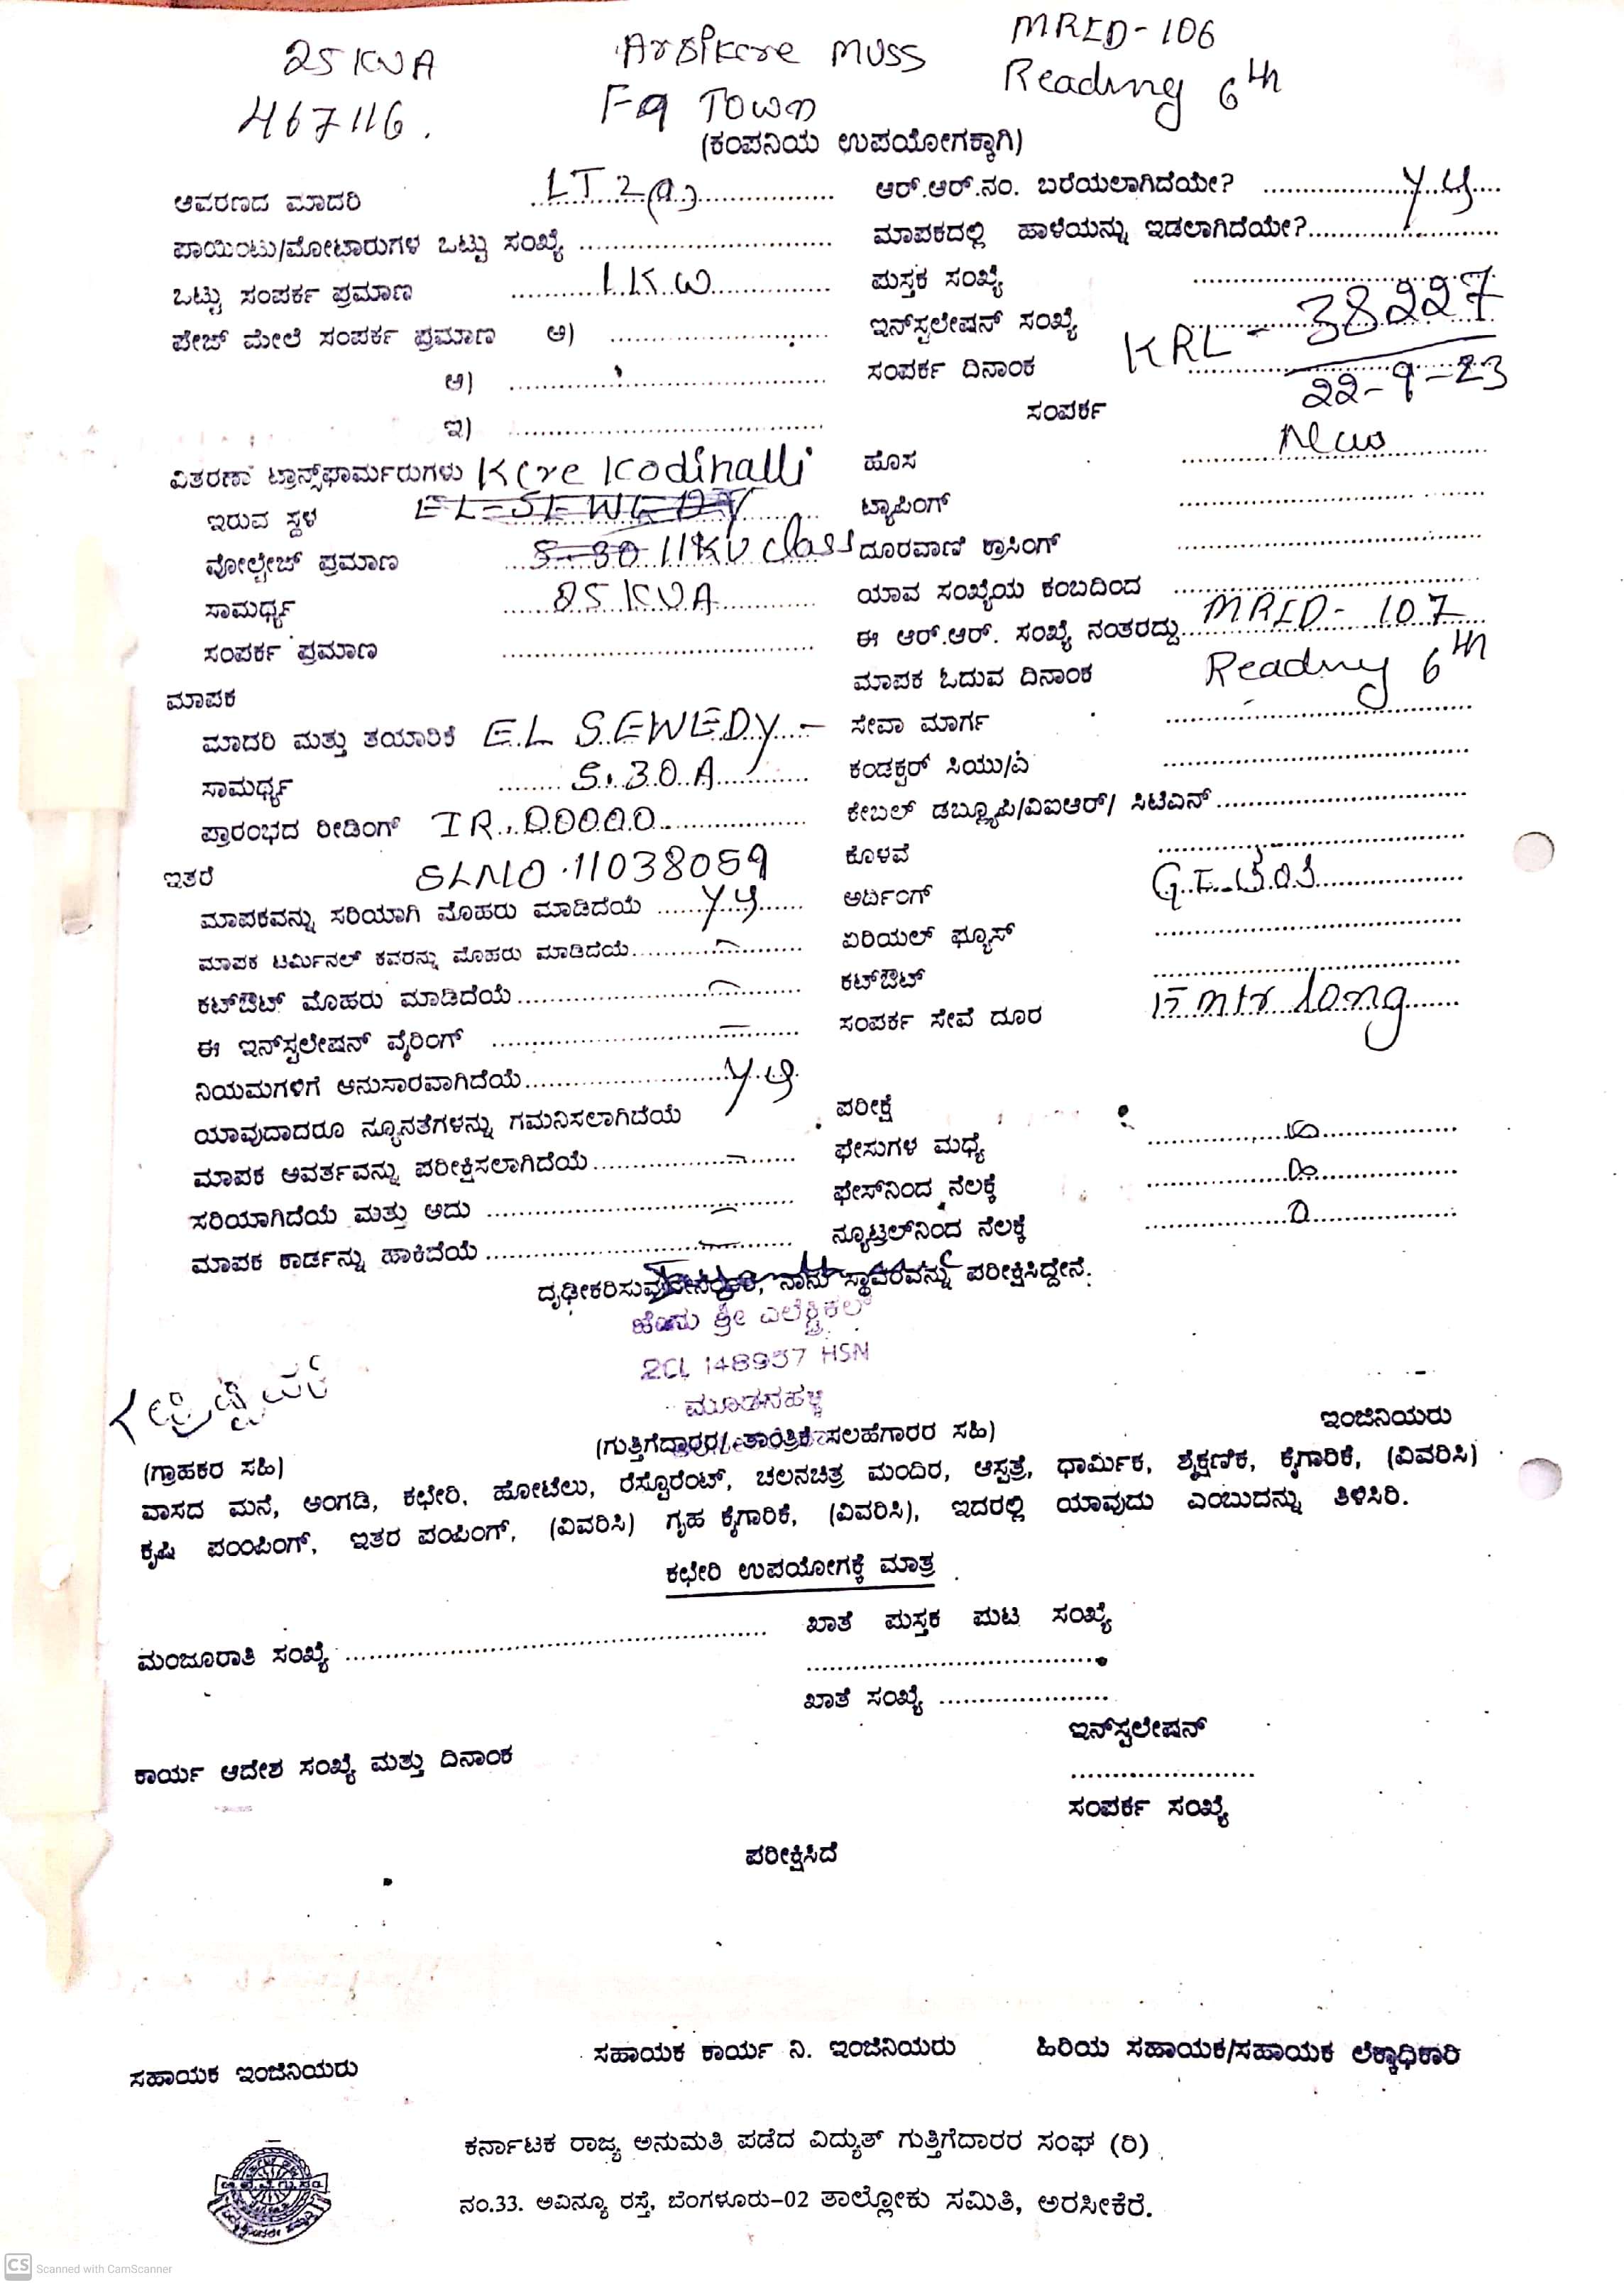 25 KVA
467116.
Arsikere MUSS
F9 Town
MRID-106
Reading 6th
(ಕಂಪನಿಯ ಉಪಯೋಗಕ್ಕಾಗಿ)
ಆವರಣದ ಮಾದರಿ LT2(a)
ಪಾಯಿಂಟು/ಮೋಟಾರುಗಳ ಒಟ್ಟು ಸಂಖ್ಯೆ
ಒಟ್ಟು ಸಂಪರ್ಕ ಪ್ರಮಾಣ 1KW
ಪೇಜ್ ಮೇಲೆ ಸಂಪರ್ಕ ಪ್ರಮಾಣ ಅ)
ಆ)
ಇ)
ವಿತರಣಾ ಟ್ರಾನ್ಸ್‌ಫಾರ್ಮರುಗಳು Kere Kodihalli
ಇರುವ ಸ್ಥಳ EL-SEWEDY
ವೋಲ್ಟೇಜ್ ಪ್ರಮಾಣ 5-30 11KV class
ಸಾಮರ್ಥ್ಯ 25 KVA
ಸಂಪರ್ಕ ಪ್ರಮಾಣ
ಮಾಪಕ
ಮಾದರಿ ಮತ್ತು ತಯಾರಿಕೆ EL SEWEDY -
ಸಾಮರ್ಥ್ಯ 5-30A
ಪ್ರಾರಂಭದ ರೀಡಿಂಗ್ IR. 00000
ಇತರೆ SLNO. 11038059
ಮಾಪಕವನ್ನು ಸರಿಯಾಗಿ ಮೊಹರು ಮಾಡಿದೆಯೆ
ಮಾಪಕ ಟರ್ಮಿನಲ್ ಕವರನ್ನು ಮೊಹರು ಮಾಡಿದೆಯೆ
ಕಟ್‌ಔಟ್ ಮೊಹರು ಮಾಡಿದೆಯೆ
ಈ ಇನ್‌ಸ್ಟಲೇಷನ್ ವೈರಿಂಗ್
ನಿಯಮಗಳಿಗೆ ಅನುಸಾರವಾಗಿದೆಯೆ
ಯಾವುದಾದರೂ ನ್ಯೂನತೆಗಳನ್ನು ಗಮನಿಸಲಾಗಿದೆಯೆ
ಮಾಪಕ ಆವರ್ತವನ್ನು ಪರೀಕ್ಷಿಸಲಾಗಿದೆಯೆ
ಸರಿಯಾಗಿದೆಯೆ ಮತ್ತು ಅದು
ಮಾಪಕ ಕಾರ್ಡನ್ನು ಹಾಕಿದೆಯೆ
ಆರ್.ಆರ್.ನಂ. ಬರೆಯಲಾಗಿದೆಯೇ?
ಮಾಪಕದಲ್ಲಿ ಹಾಳೆಯನ್ನು ಇಡಲಾಗಿದೆಯೇ?
ಪುಸ್ತಕ ಸಂಖ್ಯೆ
ಇನ್‌ಸ್ಟಲೇಷನ್ ಸಂಖ್ಯೆ KRL - 38227
ಸಂಪರ್ಕ ದಿನಾಂಕ 22-9-23
ಸಂಪರ್ಕ
ಹೊಸ New
ಟ್ಯಾಪಿಂಗ್
ದೂರವಾಣಿ ಕ್ರಾಸಿಂಗ್
ಯಾವ ಸಂಖ್ಯೆಯ ಕಂಬದಿಂದ
ಈ ಆರ್.ಆರ್. ಸಂಖ್ಯೆ ನಂತರದ್ದು MRID- 107
ಮಾಪಕ ಓದುವ ದಿನಾಂಕ Reading 6th
ಸೇವಾ ಮಾರ್ಗ
ಕಂಡಕ್ಟರ್ ಸಿಯು/ಎ
ಕೇಬಲ್ ಡಬ್ಲ್ಯೂಪಿ/ವಿಐಆರ್/ ಸಿಟಿಎನ್
ಕೊಳವೆ
ಅರ್ದಿಂಗ್
ಏರಿಯಲ್ ಫ್ಯೂಸ್
ಕಟ್‌ಔಟ್
ಸಂಪರ್ಕ ಸೇವೆ ದೂರ 15 mtr long
ಪರೀಕ್ಷೆ
ಫೇಸುಗಳ ಮಧ್ಯೆ
ಫೇಸ್‌ನಿಂದ ನೆಲಕ್ಕೆ
ನ್ಯೂಟ್ರಲ್‌ನಿಂದ ನೆಲಕ್ಕೆ
ನಾನು ಸ್ಥಾವರವನ್ನು ಪರೀಕ್ಷಿಸಿದ್ದೇನೆ.
ಶ್ರೀ ಎಲೆಕ್ಟ್ರಿಕಲ್
2CL 148957 HSN
(ಗುತ್ತಿಗೆದಾರರ/ ತಾಂತ್ರಿಕ ಸಲಹೆಗಾರರ ಸಹಿ)
ಇಂಜಿನಿಯರು
(ಗ್ರಾಹಕರ ಸಹಿ)
ವಾಸದ ಮನೆ, ಅಂಗಡಿ, ಕಛೇರಿ, ಹೋಟೆಲು, ರೆಸ್ಟೊರೆಂಟ್, ಚಲನಚಿತ್ರ ಮಂದಿರ, ಆಸ್ಪತ್ರೆ, ಧಾರ್ಮಿಕ, ಶೈಕ್ಷಣಿಕ, ಕೈಗಾರಿಕೆ, (ವಿವರಿಸಿ)
ಕೃಷಿ ಪಂಪಿಂಗ್, ಇತರ ಪಂಪಿಂಗ್, (ವಿವರಿಸಿ) ಗೃಹ ಕೈಗಾರಿಕೆ, (ವಿವರಿಸಿ), ಇದರಲ್ಲಿ ಯಾವುದು ಎಂಬುದನ್ನು ತಿಳಿಸಿರಿ.
ಕಛೇರಿ ಉಪಯೋಗಕ್ಕೆ ಮಾತ್ರ
ಮಂಜೂರಾತಿ ಸಂಖ್ಯೆ
ಖಾತೆ ಪುಸ್ತಕ ಪುಟ ಸಂಖ್ಯೆ
ಖಾತೆ ಸಂಖ್ಯೆ
ಇನ್‌ಸ್ಟಲೇಷನ್
ಕಾರ್ಯ ಆದೇಶ ಸಂಖ್ಯೆ ಮತ್ತು ದಿನಾಂಕ
ಸಂಪರ್ಕ ಸಂಖ್ಯೆ
ಪರೀಕ್ಷಿಸಿದೆ
ಸಹಾಯಕ ಇಂಜಿನಿಯರು
ಸಹಾಯಕ ಕಾರ್ಯ ನಿ. ಇಂಜಿನಿಯರು
ಹಿರಿಯ ಸಹಾಯಕ/ಸಹಾಯಕ ಲೆಕ್ಕಾಧಿಕಾರಿ
ಕರ್ನಾಟಕ ರಾಜ್ಯ ಅನುಮತಿ ಪಡೆದ ವಿದ್ಯುತ್ ಗುತ್ತಿಗೆದಾರರ ಸಂಘ (ರಿ)
ನಂ.33. ಅವಿನ್ಯೂ ರಸ್ತೆ, ಬೆಂಗಳೂರು-02 ತಾಲ್ಲೋಕು ಸಮಿತಿ, ಅರಸೀಕೆರೆ.
CS Scanned with CamScanner